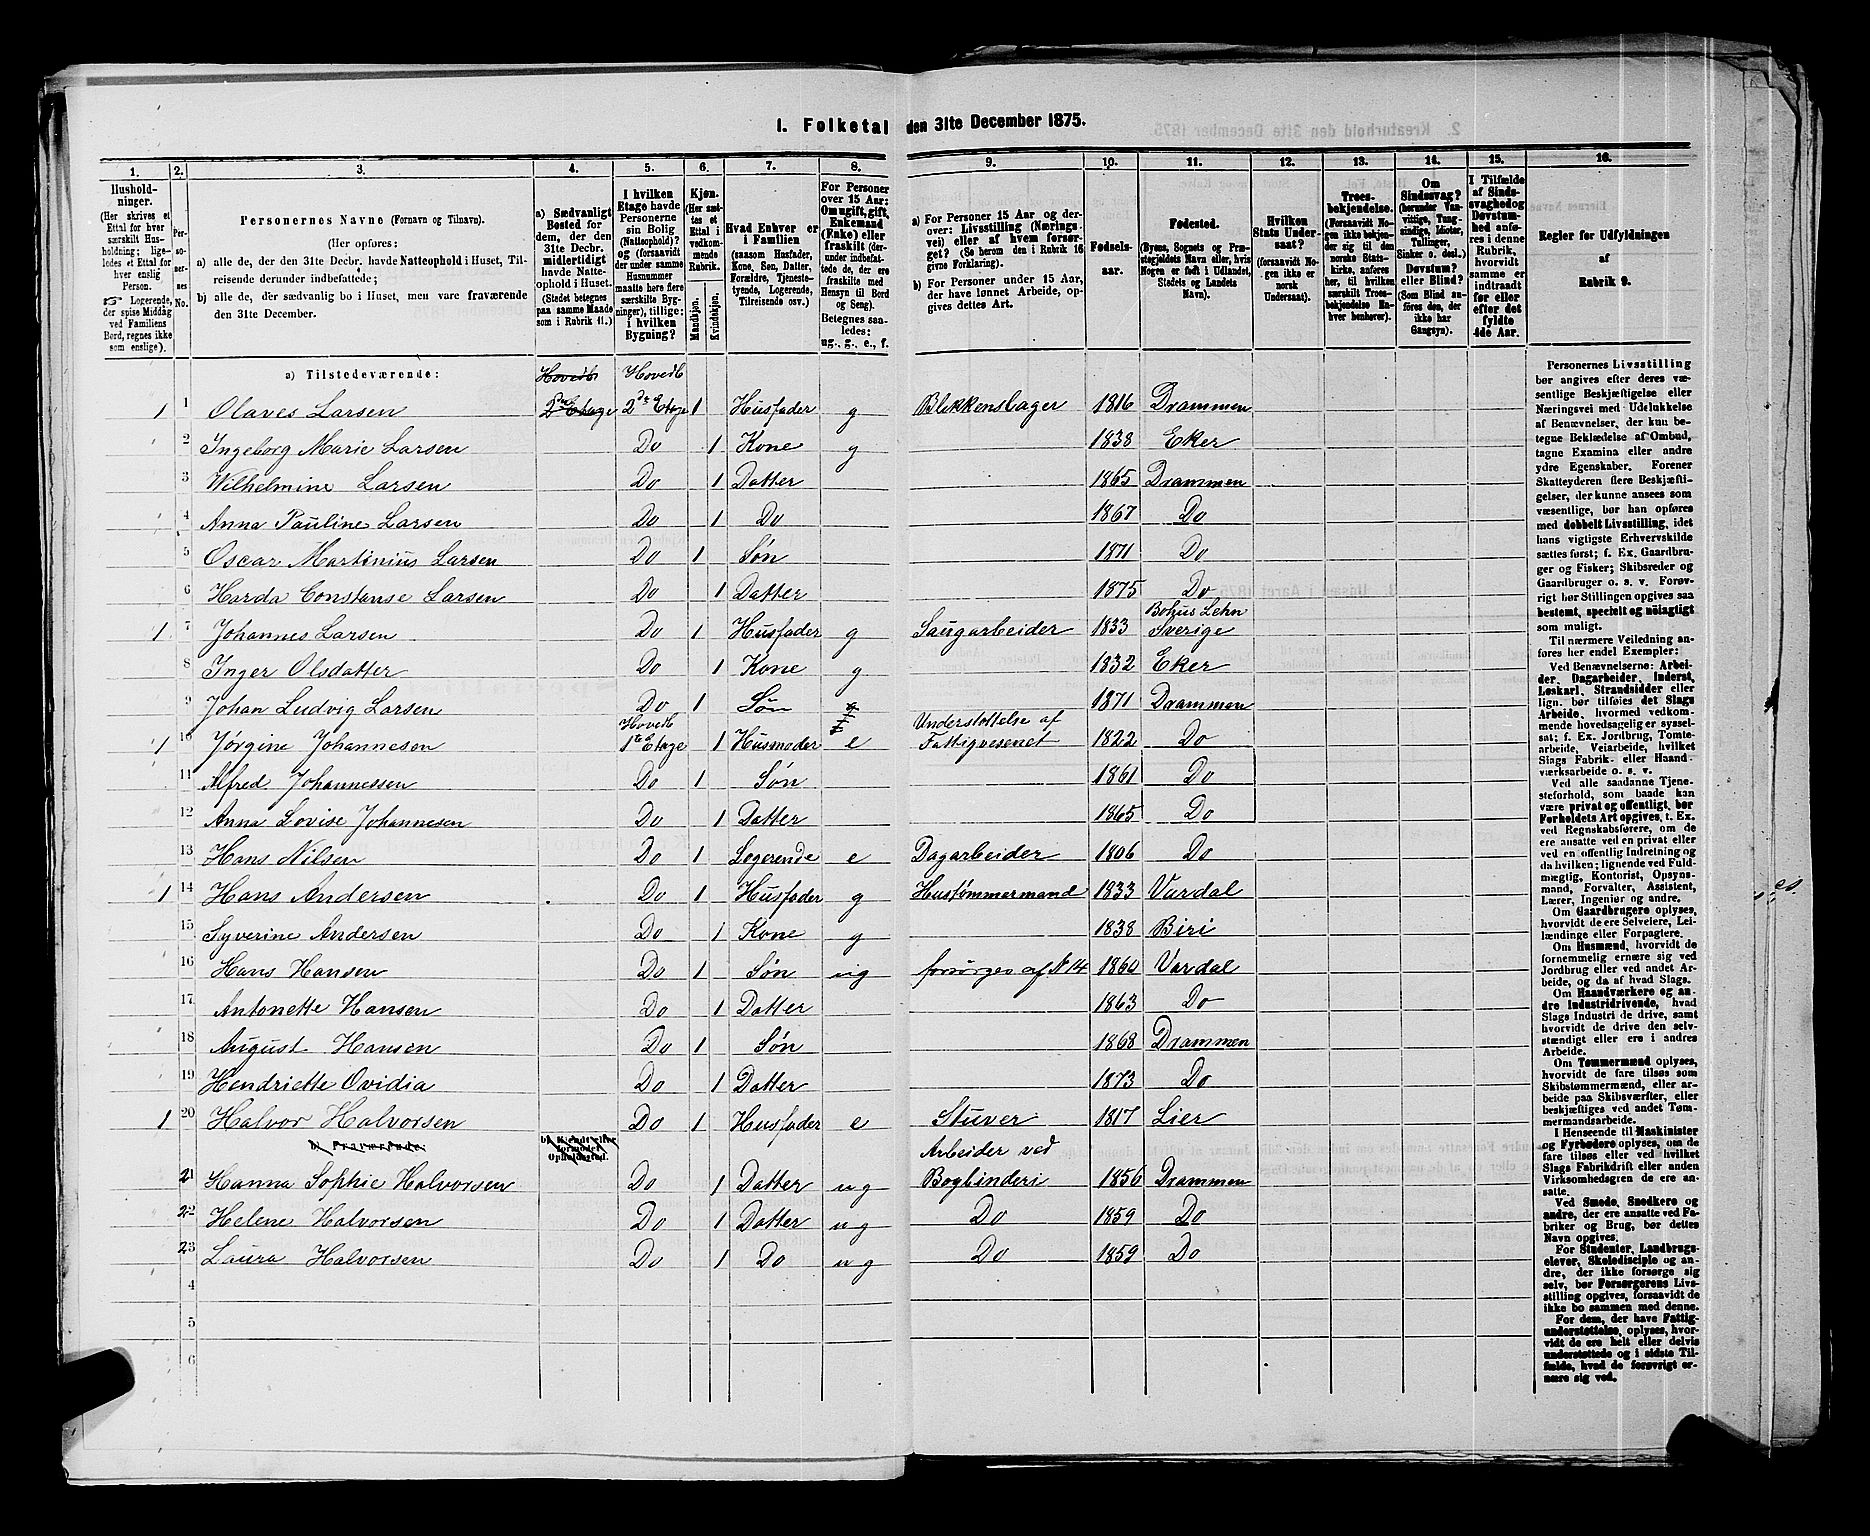 1. Folketal den 31te December 1875.
1. 2. 3. 4. 5. 6. 7. 8. 9. 10. 11. 12. 13. 14. 15. 16.
Hushold-
ninger.
(Her skrives et
Ettal for hver
særskilt Hus-
holdning; lige-
ledes et Ettal for
hver enslig
Person.
☞ Logerende,
der spise Middag
ved Familiens
Bord, regnes ikke
som enslige).
Per-
so-
ner-
nes
No.
Personernes Navne (Fornavn og Tilnavn).
(Her opføres:
a) alle de, der den 31te Decbr. havde Natteophold i Huset, Til-
reisende derunder indbefattede;
b) alle de, der sædvanlig bo i Huset, men vare fraværende
den 31te December.
a) Sædvanligt
Bosted for
dem, der den
31te Decbr.
midlertidigt
havde Natte-
ophold i Huset.
(Stedet betegnes
paa samme Maade
som i Rubrik 11.)
I hvilken
Etage havde
Personerne
sin Bolig
(Natteophold)?
og (forsaavidt
der under samme
Husnummer
maatte høre flere
særskilte Byg-
ninger), tillige:
i hvilken
Bygning?
Kjøn.
(Her sæt-
tes et
Ettal i
vedkom-
mende
Rubrik.
Mandkjøn.
Kvindekjøn.
Hvad Enhver er
i Familien
(saasom Husfader,
Kone, Søn, Datter,
Forældre, Tjeneste-
tyende, Logerende,
Tilreisende osv.)
For Personer
over 15 Aar:
Om ugift, gift,
Enkemand
(Enke) eller
fraskilt (der-
under indbefat-
tede de, der ere
fraskilte med
Hensyn til Bord
og Seng).
Betegnes saa-
ledes:
ug., g., e., f.
a) For Personer 15 Aar og der-
over: Livsstilling (Nærings-
vei) eller af hvem forsør-
get? (Se herom den i Rubrik 16
givne Forklaring).
b) For Personer under 15 Aar,
der have lønnet Arbeide, op-
gives dettes Art.
Fødsels-
aar.
Fødested.
(Byens, Sognets og Præ-
stegjeldets Navn eller, hvis
Nogen er født i Udlandet,
Stedets og Landets
Navn).
Hvilken
Stats Under-
saat?
(forsaavidt No-
gen ikke er
norsk
Undersaat).
Troes-
bekjendelse.
(Forsaavidt No-
gen ikke bekjen-
der sig til den
norske Stats-
kirke, anføres
her, til hvilken
særskilt Troes-
bekjendelse En-
hver henhører).
Om
Sindssvag?
(herunder Van-
vittige, Tung-
sindige, Idioter,
Tullinger,
Sinker o. desl.)
Døvstum?
eller Blind?
(Som Blind an-
føres den, der
ikke har
Gangsyn).
I Tilfælde
af Sinds-
svaghed og
Døvstum-
hed anfø-
res i denne
Rubrik,
hvorvidt
samme er
indtraadt
før eller
efter det
fyldte
4de Aar.
Regler for Udfyldningen
af
Rubrik 9.
a) Tilstedeværende: Hovedb Hovedb
1 1 Olaves Larsen 2den Etage 2den Etage 1 Husfader g Blekkenslager 1816 Drammen
2 Ingeborg Marie Larsen Do 1 Kone g 1838 Eker
3 Wilhelmine Larsen Do 1 Datter 1865 Drammen
4 Anna Pauline Larsen Do 1 Do 1867 Do
5 Oscar Martinius Larsen Do 1 Søn 1871 Do
6 Harda Constanse Larsen Do 1 Datter 1875 Do
1 7 Johannes Larsen Do 1 Husfader g Saugarbeider 1833 Bohus Lehn Sverige
8 Inger Olsdatter Do 1 Kone g 1832 Eker
9 Johan Ludvig Larsen Do 1 Søn 1871 Drammen
1 10 Jørgine Johannesen Hovedb 1te Etage 1 Husmoder e Understøttelse af Fattigvesenet 1822 Do
11 Alfred Johannessen Do 1 Søn 1861 Do
12 Anna Lovise Johannesen Do 1 Datter 1865 Do
13 Hans Nilsen Do 1 Logerende e Dagarbeider 1806 Do
1 14 Hans Andersen Do 1 Husfader g Hustømmermand 1833 Vardal
15 Syverine Andersen Do 1 Kone g 1838 Biri
16 Hans Hansen Do 1 Søn ug forsørges af N 14 1860 Vardal
17 Antonette Hansen Do 1 Datter 1863 Do
18 August Hansen Do 1 Søn 1868 Drammen
19 Hendriette Ovidia Do 1 Datter 1873 Do
1 20 Halvor Halvorsen Do 1 Husfader e Stuver 1817 Lier
b) Fraværende: b) Kjendt eller formodet Opholdssted.
21 Hanna Sophie Halvorsen Do 1 Datter ug Arbeider ved Bogbinderi 1856 Drammen
22 Helene Halvorsen Do 1 Datter ug Do 1859 Do
23 Laura Halvorsen Do 1 Do ug Do 1859 Do
4
5
6
Personernes Livsstilling
bør angives efter deres væ-
sentlige Beskjæftigelse eller
Næringsvei med Udelukkelse
af Benævnelser, der kun be-
tegne Beklædelse af Ombud,
tagne Examina eller andre
ydre Egenskaber. Forener
Skatteyderen flere Beskjæfti-
gelser, der kunne ansees som
væsentlige, bør han opføres
med dobbelt Livsstilling, idet
hans vigtigste Erhvervskilde
sættes først; f. Ex. Gaardbru-
ger og Fisker; Skibsreder og
Gaardbruger o. s. v. Forøv-
rigt bør Stillingen opgives saa
bestemt, specielt og nøiagtigt
som muligt.
Til nærmere Veiledning an-
føres her endel Exempler:
Ved Benævnelserne: Arbei-
der, Dagarbeider, Inderst,
Løskarl, Strandsidder eller
lign. bør tilføies det Slags
Arbeide, hvormed vedkom-
mende hovedsagelig er syssel-
sat; f. Ex. Jordbrug, Tomte-
arbeide, Veiarbeide, hvilket
Slags Fabrik- eller Haand-
værksarbeide o. s. v.
Ved alle saadanne Tjene-
steforhold, som baade kan
være privat og offentligt, bør
Forholdets Art opgives, t. Ex.
ved Regnskabsførere, om de
ere ansatte ved en privat eller
ved en offentlig Indretning og
da hvilken; lignende ved Fuld-
mægtig, Kontorist, Opsyns-
mand, Forvalter, Assistent,
Lærer, Ingeniør og andre.
Om Gaardbrugere oplyses,
hvorvidt de ere Selveiere, Lei-
lændinge eller Forpagtere.
Om Husmænd, hvorvidt de
fornemmelig ernære sig ved
Jordbrug eller ved andet Ar-
beide, og da af hvad Slags.
Om Haandværkere og an-
dre Industridrivende, hvad
Slags Industri de drive, samt
hvorvidt de drive den selv-
stændigt eller ere i andres
Arbeide.
Om Tømmermænd oplyses,
hvorvidt de fare tilsøs som
Skibstømmermænd, eller ar-
beide paa Skibsværfter, eller
beskjæftiges ved andet Tøm-
mermandsarbeide.
I Henseende til Maskinister
og Fyrbødere oplyses, om de
fare tilsøs eller ved hvilket
Slags Fabrikdrift eller anden
Virksomhedsgren de ere an-
satte.
Ved Smede, Snedkere og
andre, der ere ansatte ved Fa-
briker og Brug, bør dettes
Navn opgives.
For Studenter, Landbrugs-
elever, Skoledisciple og an-
dre, der ikke forsørge sig
selv, bør Forsørgerens Livs-
stilling opgives, forsaavidt de
ikke bo sammen med denne.
For dem, der have Fattig-
understøttelse, oplyses, hvor-
vidt de ere helt eller delvis
understøttede og i sidste Til-
fælde, hvad de forøvrigt er-
nære sig ved.